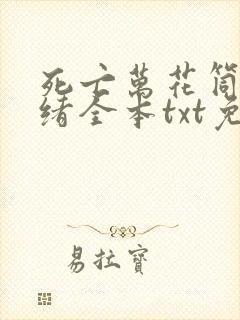 死亡萬花筒
绪全本txt免
易拉寶